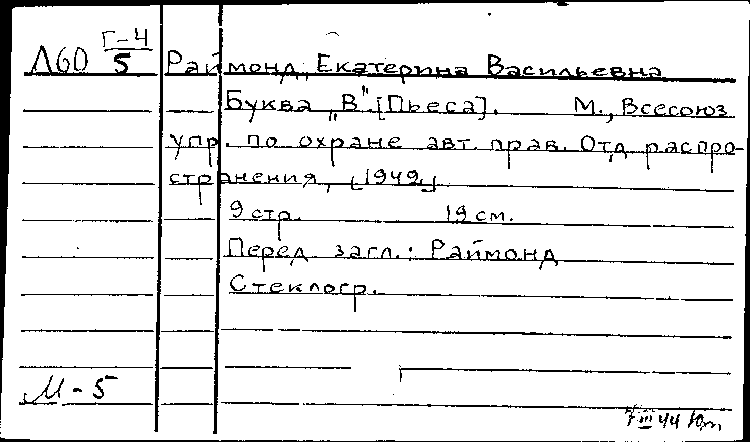 Л60 Г-4/5 Раймонд, Екатерина Васильевна
Буква „В". [Пьеса]. М., Всесоюз.
упр. по охране авт. прав. Отд. распро-
странения, [1949]
9 стр. 19 см.
Перед загл.: Раймонд
Стеклогр.
М-5
7 III 44